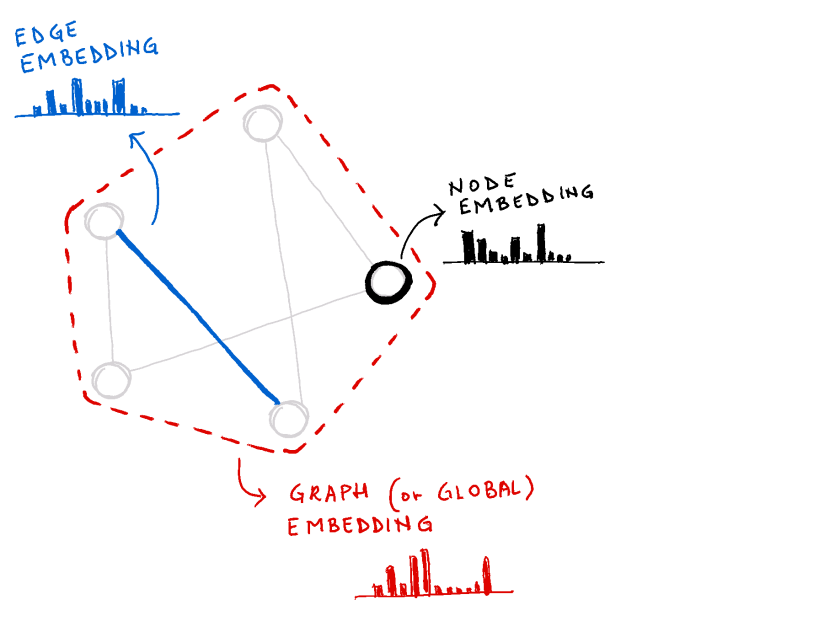 EDGE
EMBEDDING
NODE
EMBEDDING
GRAPH (or GLOBAL)
EMBEDDING